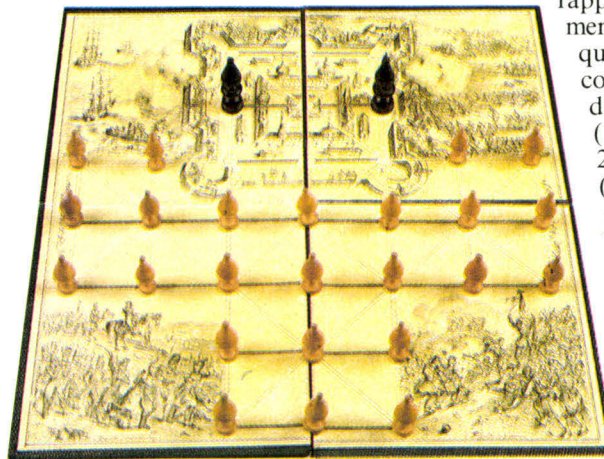 rapp
men
qu
co
d
(
2
(